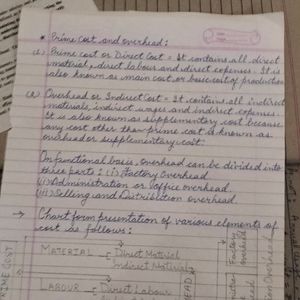 * Prime cost and overhead :
(i) Prime cost or Direct Cost = It contains all direct
material, direct labour and indirect expenses. It is
also known as main cost or basic cost of production
(ii) Overhead or Indirect Cost = It contains all indirect
materials, indirect wages and indirect expenses.
It is also known as supplementary cost because
any cost other than prime cost is known as
overhead or supplementary cost.
On functional basis, overhead can be divided into
three parts : (i) Factory Overhead
(ii) Administration or office overhead
(iii) Selling and Distribution overhead.
→ Chart form presentation of various elements of
cost as follows :
MATERIAL → Direct Material
Indirect Material
LABOUR → Direct Labour
PRIME COST
Factory
Overhead